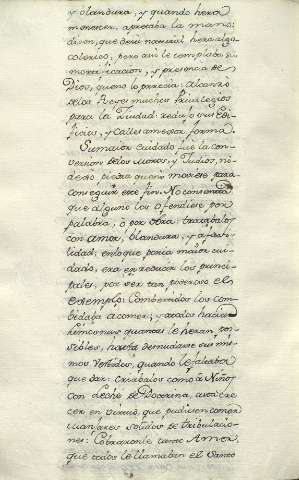 y blandura, y quando hera
menester, apretaba la mano:
dizen, que de su natural hera algo
colerico, pero con le complido su
mortificacion, y presencia de
Dios, que no lo parecia: alcanzo
de los Reyes muchos Privilegios
para la Ciudad: reduxo sus Edi-
ficios, y Calles a mexor forma.
Su maior cuidado fue la con-
version de los moros, y Judios, no
dexo piedra que no moviese para
conseguir este fin. No consentia
que alguno los ofendiese por
palabra, o por obra: tratabalos
con amor, blandura, y afabi-
lidad: en lo que ponia maior cui-
dado, era en reducir los princi-
pales, por ser tan poderoso el
exemplo: Combertidos los com-
bidaba a comer, y a todos hacia
limosnas quantas le heran po-
sibles, hasta desnudarse sus mis-
mos vestidos, quando le faltaba
que dar: criabalos como a Niños
con leche de Doctrina, asta cre-
cer en virtud, que pudiesen comer
manjares solidos de tribulacio-
nes: Cobraronle tanto Amor,
que todos le llamaban el Santo